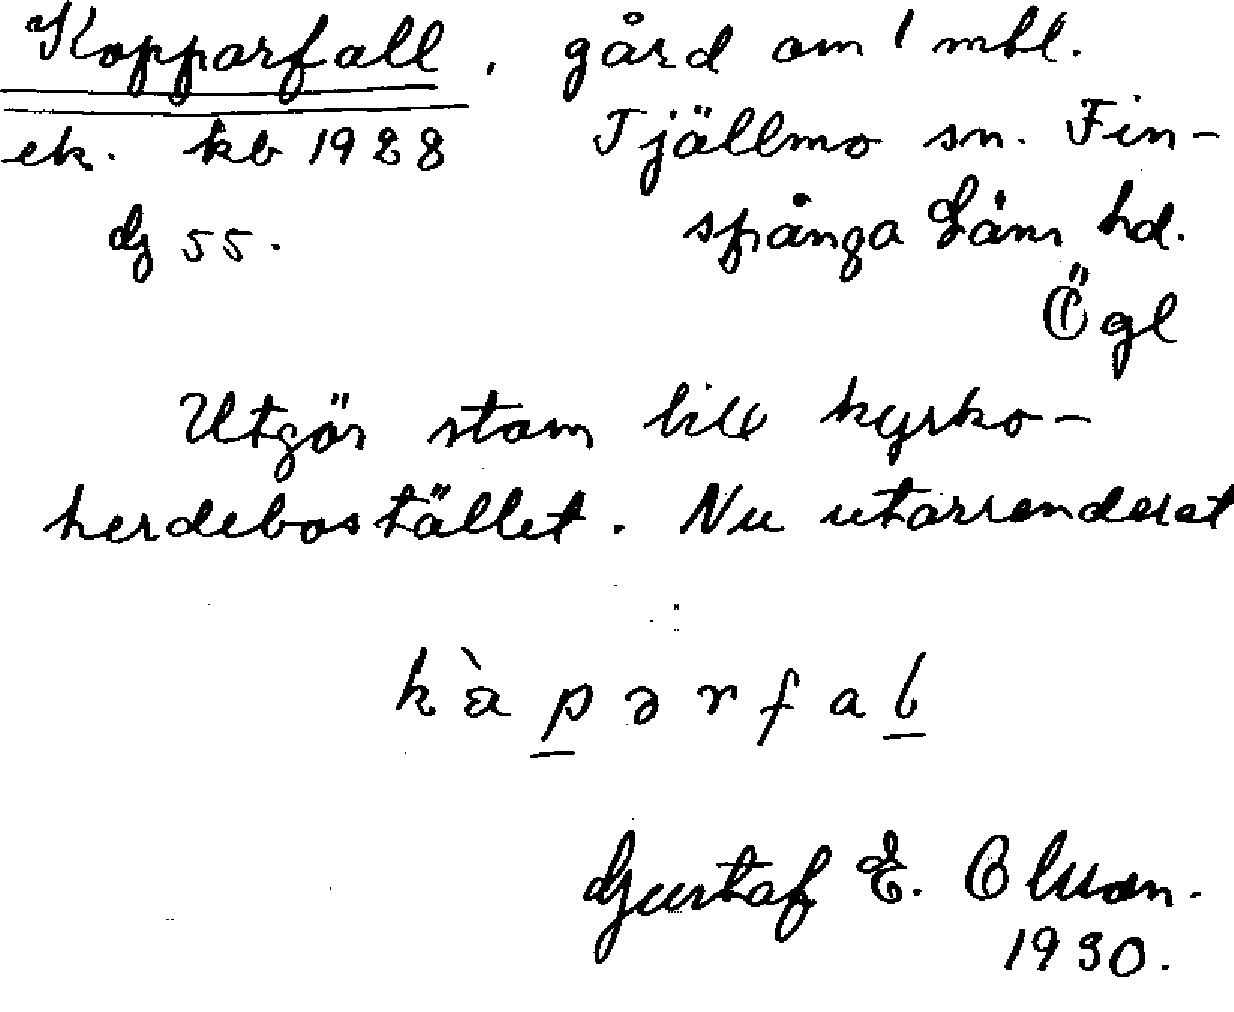 Kopparfall, gård om 1 mtl.
ek. kb 1928 Tjällmo sn. Fin-
dj 55. spånga Läns hd.
Ögl
Utgör stam till kyrko-
herdebostället. Nu utarrenderat
kàpərfal
Gustaf E. Olsson.
1930.